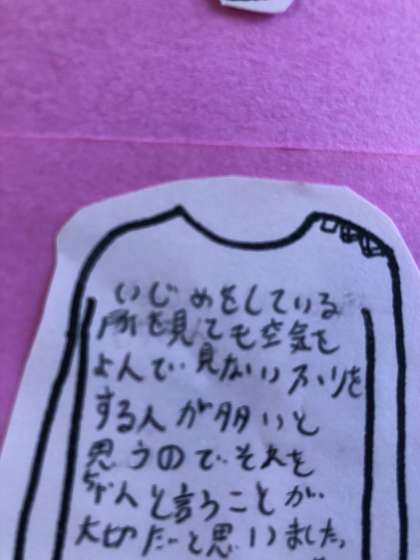 いじめをしている
所を見ても空気を
よんで見ないフリを
する人が多いと
思うのでそれを
ちゃんと言うことが
大切だと思いました。